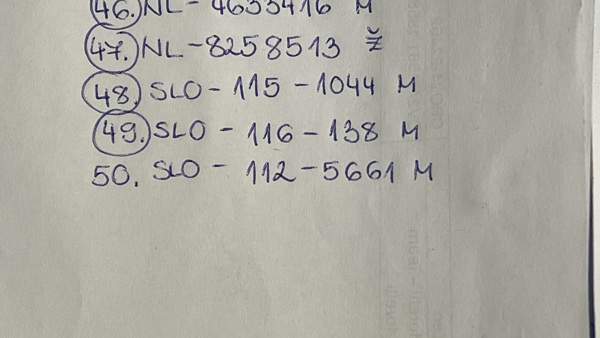 46. NL - 4653416 M
47. NL - 8258513 Ž
48. SLO - 115 - 1044 M
49. SLO - 116 - 138 M
50. SLO - 112 - 5661 M